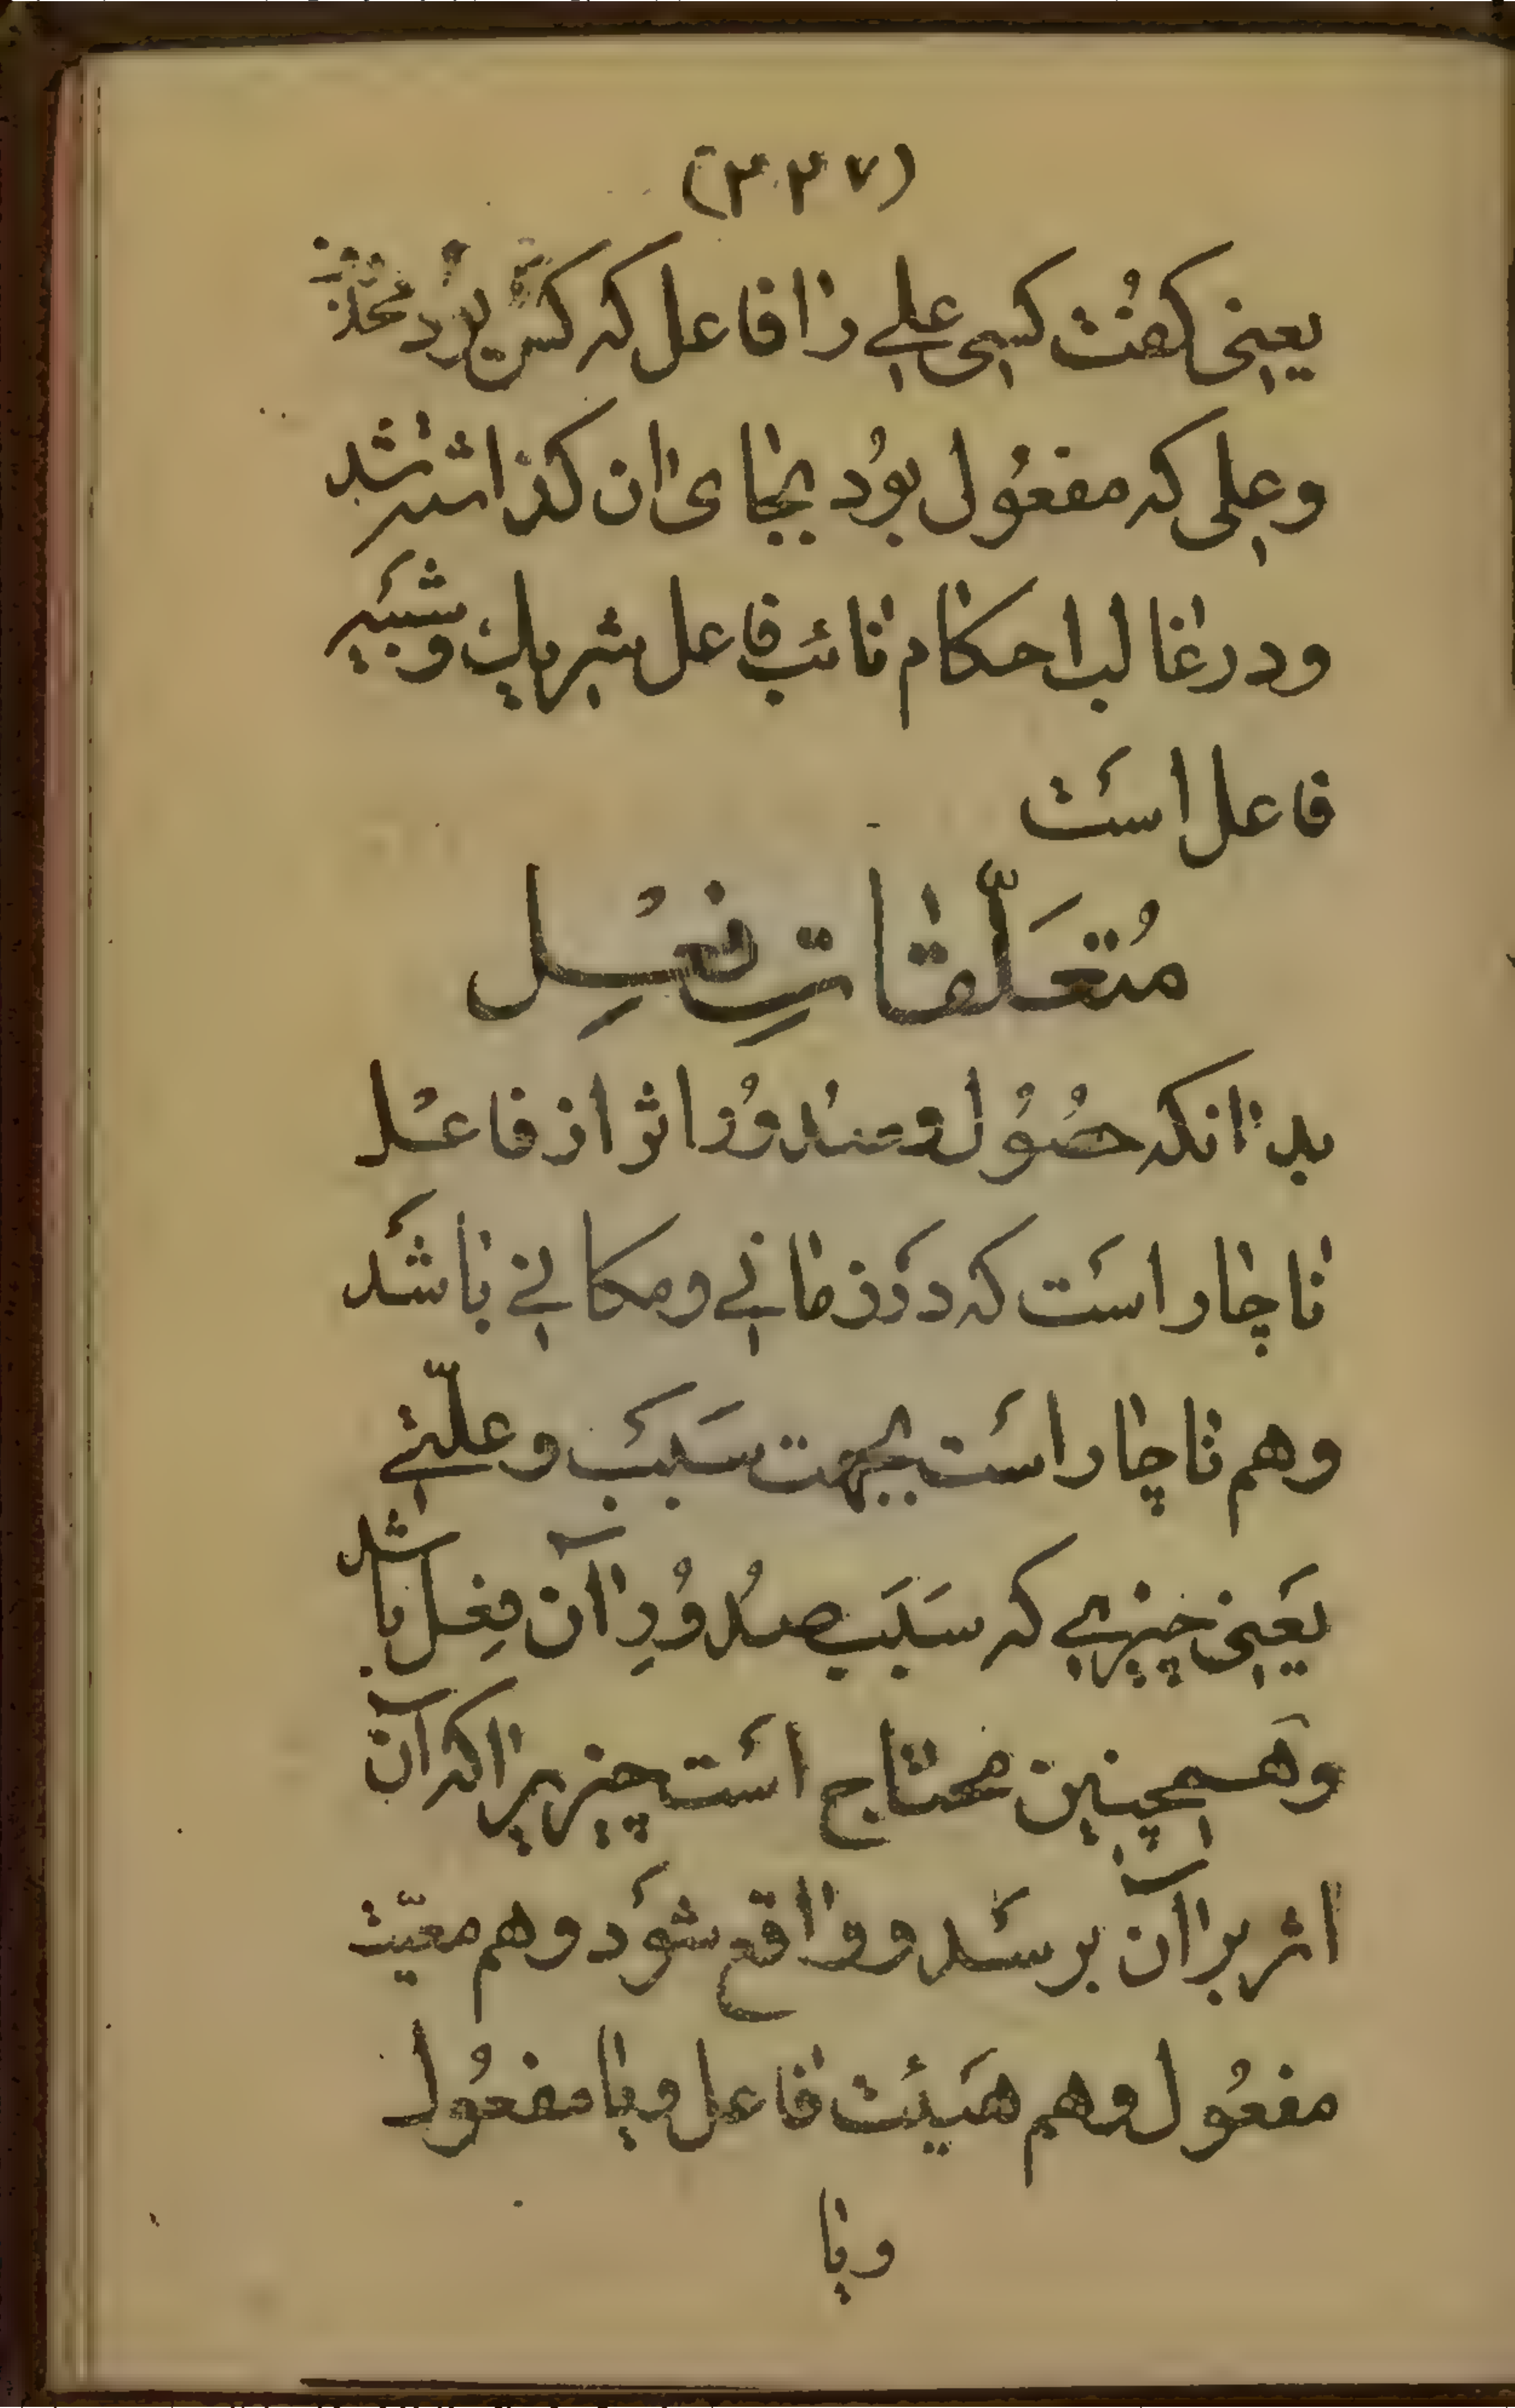 (۳۳۷)
یعنی کفُت کسی علی را فاعل که کس بوُد محذوف
وعلی که مفعوُل بوُد بجای ان کذاشته شد
ودر غالب احکام نائب فاعل شریك وشبَیهِ
فاعل اسَت
مُتعَلّقاتِ فعْلِ
بدانکه حصُوُل وصدوُر اثر از فاعْل
ناچار اسَت که دَر زمانی ومکانی باشَد
وهم ناچار اسَت بجهت سَبَب وعلّتی
یعَنی چیزی که سَبَب صدُوُرِ آن فِعل باشد
وهَمچنین محتاج اسَت چیزیرا که آن
اثر بر آن برسَد وواقع شوَد وهم معیّت
مفعوُل وهم هَیئت فاعل ویا مفعوُل
ویا